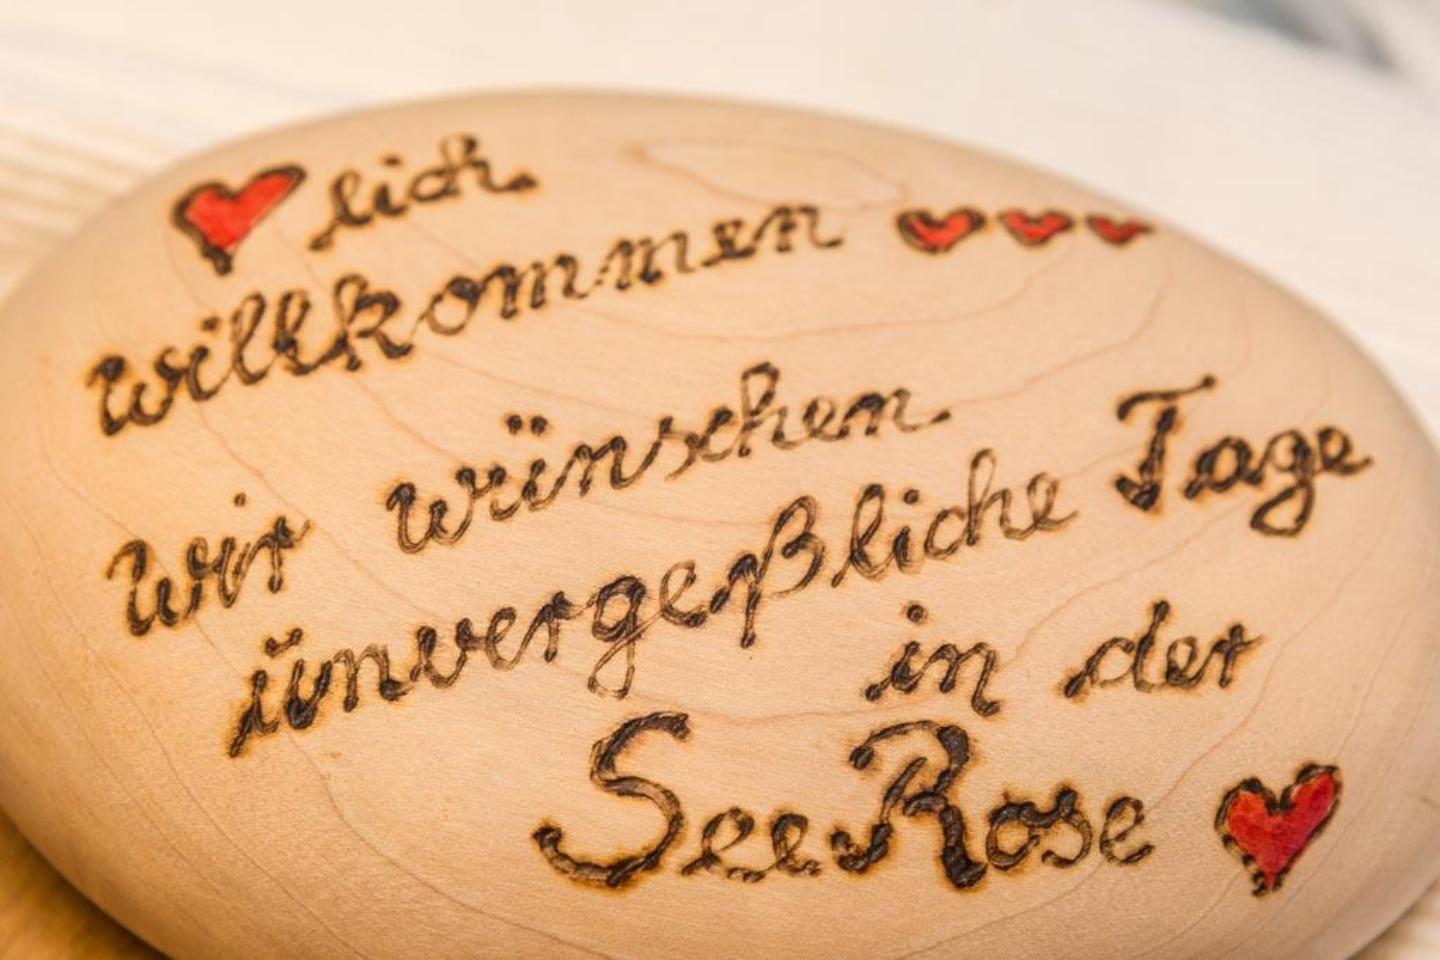 ❤lich
willkommen ❤❤❤
wir wünschen
unvergeßliche Tage
in der
SeeRose ❤